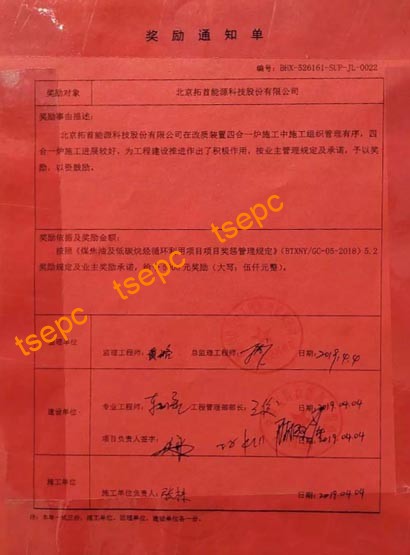 奖励通知单
编号：BHX-326161-SUP-JL-0022
奖励对象 北京拓首能源科技股份有限公司
奖励事由描述：
北京拓首能源科技股份有限公司在改质装置四合一炉施工中施工组织管理有序，四
合一炉施工进展较好，为工程建设推进作出了积极作用，按业主管理规定及承诺，予以奖
励，以资鼓励。
奖励依据及奖励金额：
按照《煤焦油及低碳烷烃循环利用项目项目奖惩管理规定》（BTXNY/GC-05-2018）5.2
奖励规定及业主奖励承诺，给予 元奖励（大写：伍仟元整）。
tsepc tsepc tsepc
监理单位
监理工程师： 总监理工程师： 日期：2019.4.4
建设单位
专业工程师： 工程管理部部长： 日期：2019.04.04
项目负责人签字： 2019.04.04
施工单位
施工单位负责人： 日期：2019.04.04
注：本单一式三份，施工单位、监理单位、建设单位各一份。